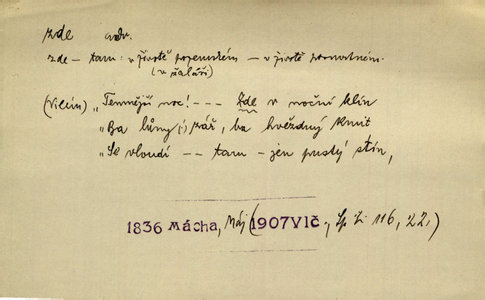 zde adv.
zde – tam: v životě pozemském – v životě posmrtném.
(v žaláři)
(Vilém) „Temnější noc! - - - Zde v noční klín
„Ba lůny (;) zář, ba hvězdný kmit
„Se vloudí - - tam – jen pustý stín,
1836 Mácha, Máj (1907Vlč., Sp. I. 116, 22.)